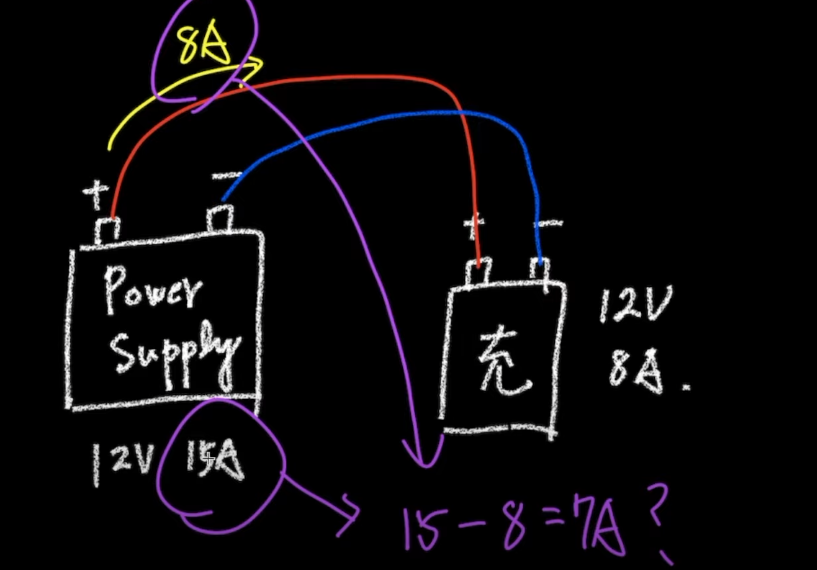 8A
+
−
Power
Supply
12V 15A
+ −
充
12V
8A.
15-8=7A?